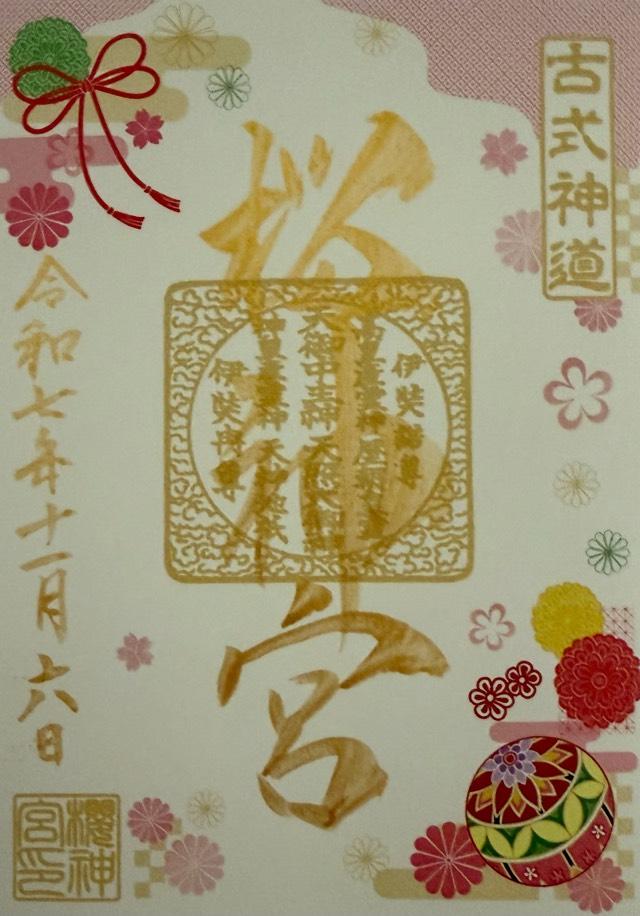 古式神道
桜神宮
伊奘諾尊
天御中主神 天照大御神
伊奘冉尊
令和七年十一月六日
櫻神
宮印